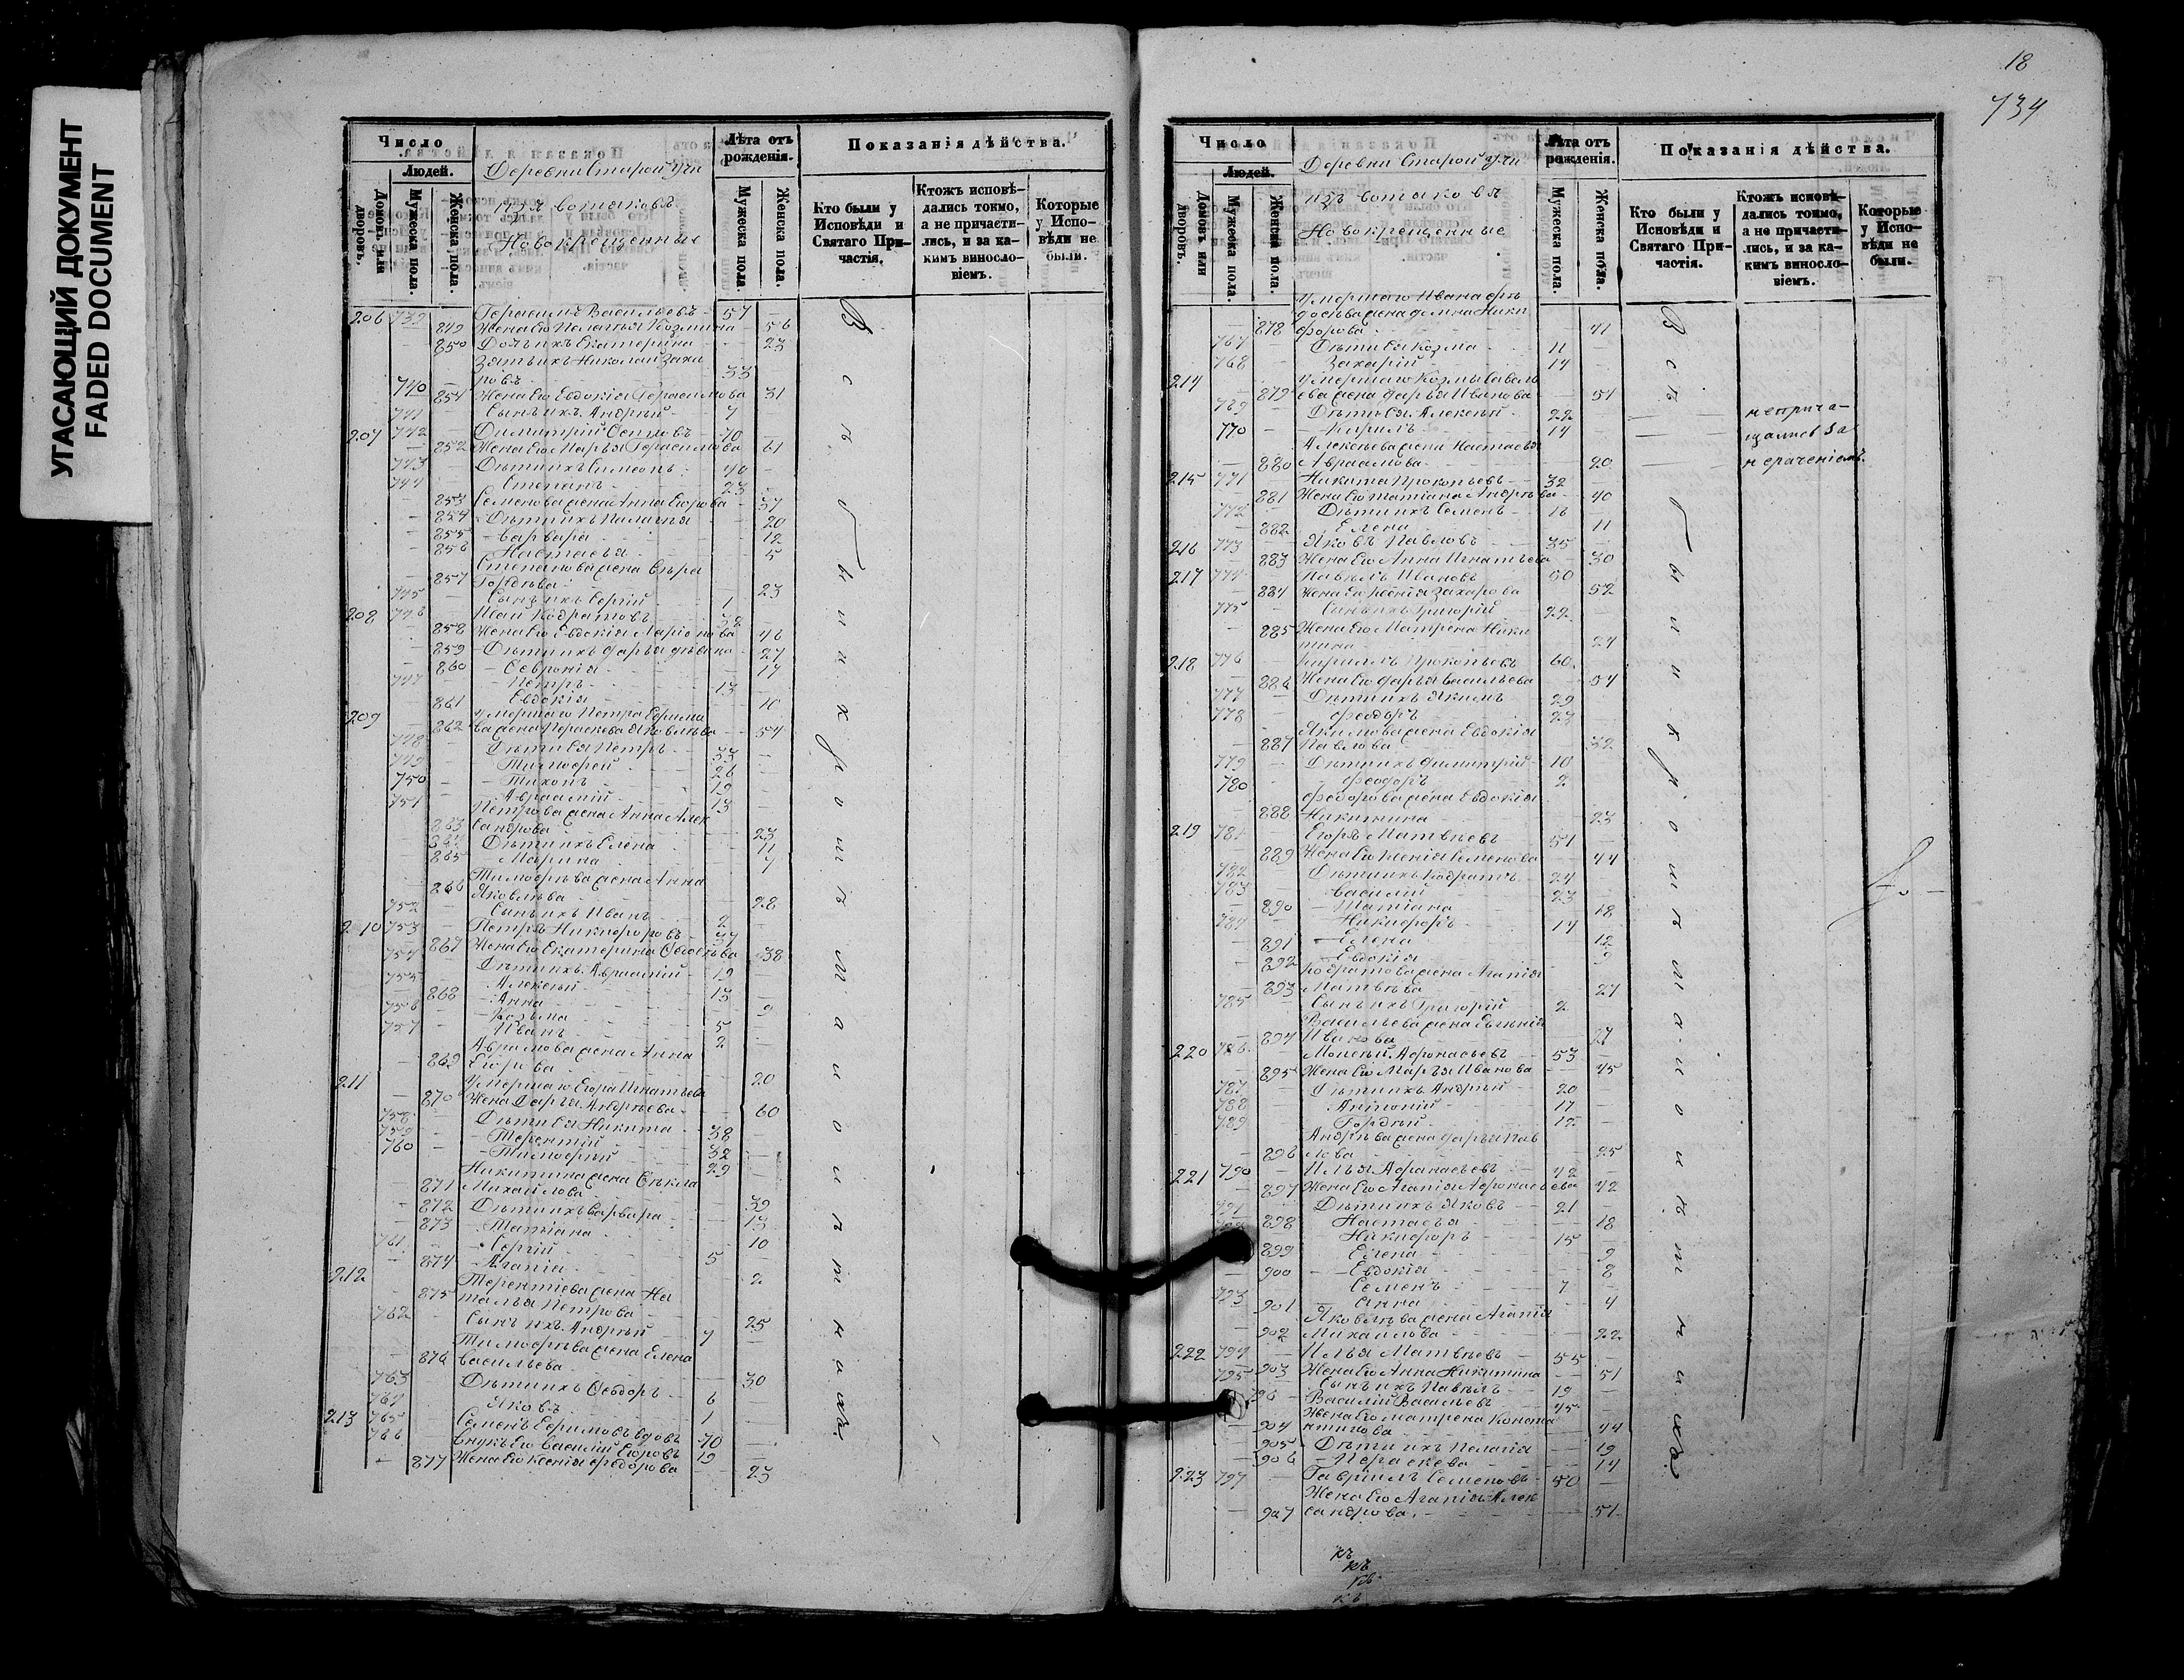 УГАСАЮЩИЙ ДОКУМЕНТ
FADED DOCUMENT
Число
Людей.
Домовъ или дворовъ.
Мужеска пола.
Женска пола.
Деревни Старой Учи
изъ вотяковъ
Новокрещенные
Лѣта отъ рожденія.
Мужеска пола.
Женска пола.
Показанія дѣйства.
Кто были у Исповѣди и Святаго Причастія.
Ктожъ исповѣдались токмо, а не причастились, и за какимъ винословіемъ.
Которые у Исповѣди не были.
206 739 Герасимъ Васильевъ 57
849 Жена Его Пелагья Козмина 56
850 Дочь ихъ Екатерина 23
Зять ихъ Николай Заха
740 ровъ 33
Жена Его Евдокія Герасимова 31
741 Сынъ ихъ Андрей 7
207 742 Димитрій Осиповъ 70
852 Жена Его Марья Герасимова 61
743 Дѣти ихъ Симеонъ 40
744 Степанъ 23
853 Семенова жена Анна Егорова 37
854 Дѣти ихъ Палагья 20
855 Варвара 12
856 Настасья 5
Степанова жена Вѣра
857 Гордѣева 23
745 Сынъ ихъ Сергій 1
208 746 Иван Кодратовъ
858 Жена Его Евдокія Ларіонова 46
859 Дѣти ихъ Дарья дѣвка 27
860 Февронія 17
747 Петръ 13
861 Евдокія 10
209 умершаго Петра Ефимо
862 ва жена Параскева Яковлева 54
748 Дѣти Ея Петръ 33
749 Тимофей 26
750 Тихонъ 19
751 Авраамій 13
Петрова жена Анна Алек
863 сандрова 23
Дѣти ихъ Елена 11
865 Марина 7
Тимофѣева жена Анна
866 Яковлева 28
752 Сынъ ихъ Иванъ 2
210 753 Петръ Никифоровъ
867 Жена Его Екатерина 38
754 Дѣти ихъ Авраамій 19
755 Алексѣй 13
868 Анна 9
756 Козьма 5
757 Иванъ 2
Аврамова жена Анна
869 Егорова 20
211 умершаго Егора Игнатьева
870 Жена Дарья Андреева 60
758 Дѣти Ея Никита 38
759 Терентій 32
760 Тимофѣй 29
Никитина жена Ѳекла
871 Михайлова 39
872 Дѣти ихъ Варвара 13
873 Татіана 10
761 Сергій 5
874 Агапія 2
212 Терентіева жена На
875 талья Петрова 25
762 Сынъ ихъ Андрей 7
Тимофѣева жена Елена
876 Васильева 30
763 Дѣти ихъ Ѳедоръ 6
764 Яковъ 1
213 765 Семенъ Ефимовъ вдовъ 70
766 Внукъ Его Василій Егоровъ 19
877 Жена Его Ксенія Федорова 23
Всѣ были и къ причастію
18
734
Число
Людей.
Домовъ или дворовъ.
Мужеска пола.
Женска пола.
Деревни Старой Учи
изъ вотяковъ
Новокрещенные
Лѣта отъ рожденія.
Мужеска пола.
Женска пола.
Показанія дѣйства.
Кто были у Исповѣди и Святаго Причастія.
Ктожъ исповѣдались токмо, а не причастились, и за какимъ винословіемъ.
Которые у Исповѣди не были.
умершаго Ивана
878 форова 41
767 Дѣти Ея Козма 11
768 Захарій 14
214 умершаго Козмы Савель
879 ева жена Дарья Иванова 51
769 Дѣти Ея Алексѣй 22 неприча-
770 Кирилъ 14 щались за
Алексѣева жена Настасья
880 Авраамова 20 нераченіемъ.
215 771 Никита Прокопьевъ 32
881 Жена Его Татіана Андреева 40
772 Дѣти ихъ Семенъ 16
882 Елена 11
216 773 Яковъ Павловъ 35
883 Жена Его Анна Игнатьева 30
217 774 Павелъ Ивановъ 60
884 Жена Его Ксенія Захарова 52
775 Сынъ ихъ Григорій 22
885 Жена Его Матрена Ники
тина 24
218 776 Кириллъ Прокопьевъ 60
886 Жена Его Дарья Васильева 54
777 Дѣти ихъ Якимъ 29
778 Феодоръ
Якимова жена Евдокія
887 Павлова 32
779 Дѣти ихъ Димитрій 10
780 Феодоръ 2
Федорова жена Евдокія
888 Никитина 23
219 781 Егоръ Матвѣевъ 51
889 Жена Его Ксенія Семенова 44
782 Дѣти ихъ Кодратъ 24
783 Василій 23
890 Татіана 18
784 Никифоръ 14
891 Елена 12
892 Евдокія 9
Кодратова жена Агапія
893 Матвѣева 27
785 Сынъ ихъ Григорій 2
Васильева жена Евгенія
894 Иванова
220 786 Моисей Афонасьевъ 53
895 Жена Его Марья Иванова 45
787 Дѣти ихъ Андрей 20
788 Антоній 17
789 Гордѣй 12
Андрѣева жена Дарья Пав
896 лова 25
221 790 Илья Афанасьевъ 42
897 Жена Его Агапія Афонасьева 42
791 Дѣти ихъ Яковъ 21
898 Настасья 18
Никифоръ 15
899 Елена 9
900 Евдокія 8
793 Семенъ 7
901 Анна 4
Яковлева жена Агапія
902 Михайлова 22
222 794 Илья Матвѣевъ 55
903 Жена Его Анна Никитина 51
795 Сынъ ихъ Павелъ 19
796 Василій Васильевъ 45
Жена Его Матрена Конста
904 нтинова 44
905 Дѣти ихъ Пелагія 19
906 Параскева 14
223 797 Гавріилъ Семеновъ 50
Жена Его Агапія Алек
907 сандрова 51
къ
къ
къ
къ